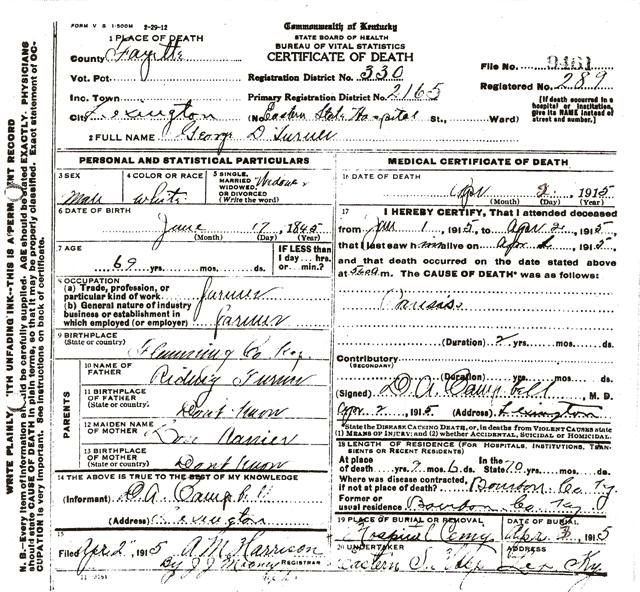 FORM V S 1-500M 2-29-12
Commonwealth of Kentucky
STATE BOARD OF HEALTH
BUREAU OF VITAL STATISTICS
CERTIFICATE OF DEATH
1 PLACE OF DEATH
County Fayette
Vot. Pct.
Inc. Town
City Lexington
Registration District No. 330
Primary Registration District No. 2165
(No. Eastern State Hospital St., Ward)
File No. 9461
Registered No. 289
[If death occurred in a
hospital or institution,
give its NAME instead of
street and number.]
2 FULL NAME George D Turner
PERSONAL AND STATISTICAL PARTICULARS
3 SEX
Male
4 COLOR OR RACE
White
5 SINGLE,
MARRIED
WIDOWED
OR DIVORCED
(Write the word)
Widower
6 DATE OF BIRTH
June 17, 1845
(Month) (Day) (Year)
7 AGE
69 yrs. mos. ds.
IF LESS than
1 day... hrs.
or... min.?
8 OCCUPATION
(a) Trade, profession, or
particular kind of work Farmer
(b) General nature of industry
business or establishment in
which employed (or employer) Farmer
9 BIRTHPLACE
(State or country)
Flemming Co. Ky.
PARENTS
10 NAME OF
FATHER
Turner
11 BIRTHPLACE
OF FATHER
(State or country)
Dont Know
12 MAIDEN NAME
OF MOTHER
13 BIRTHPLACE
OF MOTHER
(State or country)
Dont Know
14 THE ABOVE IS TRUE TO THE BEST OF MY KNOWLEDGE
(Informant) D.A. Campbell
(Address) Lexington
15
Filed Apr 2, 1915 A M Harrison
By J J Mooney REGISTRAR
MEDICAL CERTIFICATE OF DEATH
16 DATE OF DEATH
Apr 2, 1915
(Month) (Day) (Year)
17 I HEREBY CERTIFY, That I attended deceased
from Jan 1, 1915, to Apr 2, 1915
that I last saw him alive on Apr 2, 1915
and that death occurred on the date stated above
at m. The CAUSE OF DEATH* was as follows:
Paresis
(Duration) 2 yrs. mos. ds.
Contributory
(SECONDARY)
(Duration) yrs. mos. ds.
(Signed) D. A. Campbell, M. D.
Apr 2, 1915 (Address) Lexington
*State the DISEASE CAUSING DEATH, or, in deaths from VIOLENT CAUSES state
(1) MEANS OF INJURY; and (2) whether ACCIDENTAL, SUICIDAL OR HOMICIDAL.
18 LENGTH OF RESIDENCE (FOR HOSPITALS, INSTITUTIONS, TRAN-
SIENTS OR RECENT RESIDENTS)
At place
of death yrs. mos. ds.
In the
State 70 yrs. mos. ds.
Where was disease contracted,
if not at place of death? Bourbon Co. Ky.
Former or
usual residence Bourbon Co. Ky
19 PLACE OF BURIAL OR REMOVAL
Hospital Cemy
DATE OF BURIAL
Apr 3, 1915
20 UNDERTAKER
Eastern S. Hosp
ADDRESS
Lex Ky.
WRITE PLAINLY, WITH UNFADING INK—THIS IS A PERMANENT RECORD
N. B.—Every item of information should be carefully supplied. AGE should be stated EXACTLY. PHYSICIANS
should state CAUSE OF DEATH in plain terms, so that it may be properly classified. Exact statement of OC-
CUPATION is very important. See instructions on back of certificate.